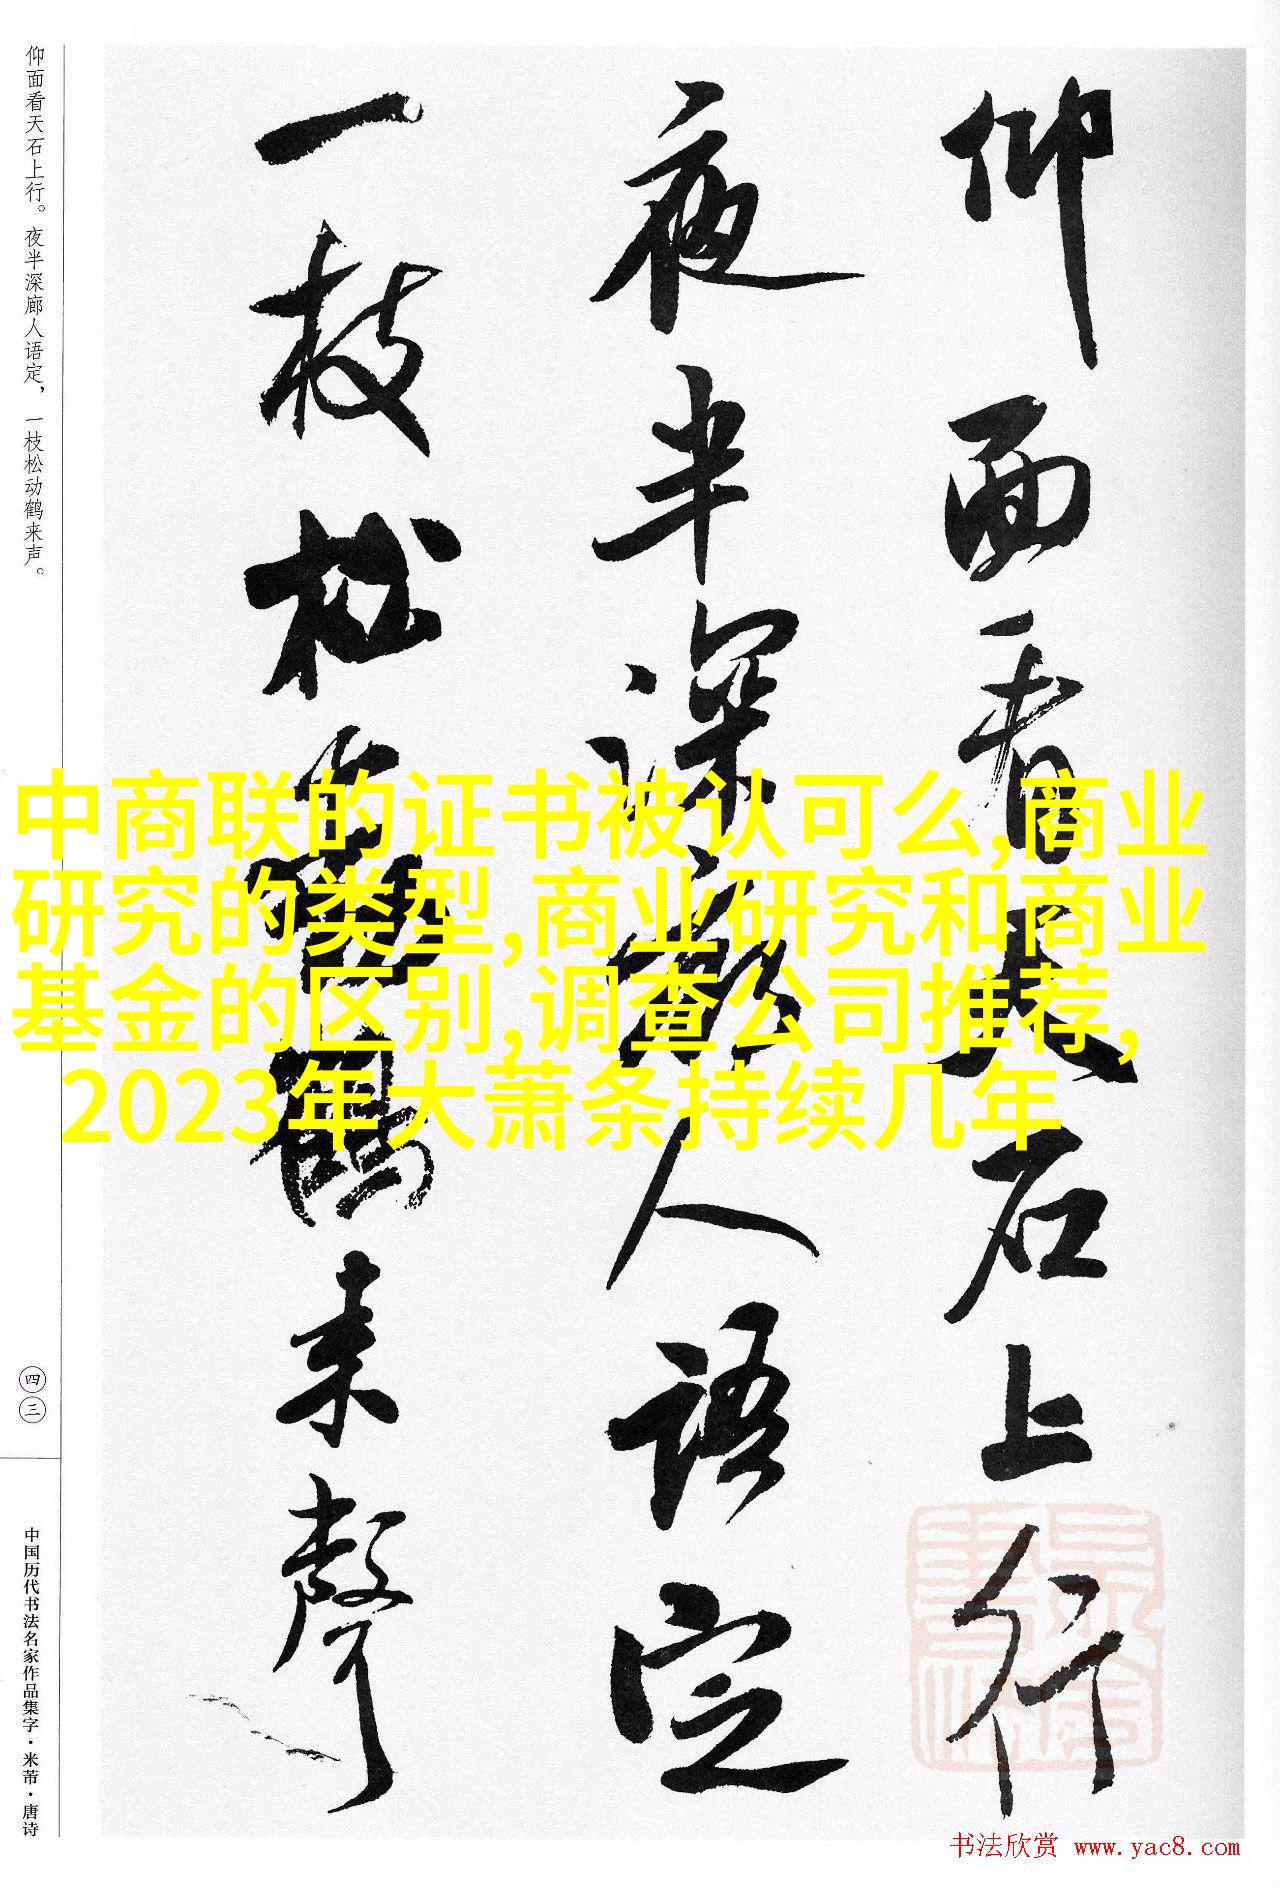 仰面看天石上行
夜半深廊人语定
一枝松动鹤来声
仰面看天石上行。夜半深廊人语定，一枝松动鹤来声。
中商联的证书被认可么,商业
研究的类型,商业研究和商业
基金的区别,调查公司推荐,
2023年大萧条持续几年
四三
中国历代书法名家作品集字·米芾·唐诗
书法欣赏 www.yac8.com